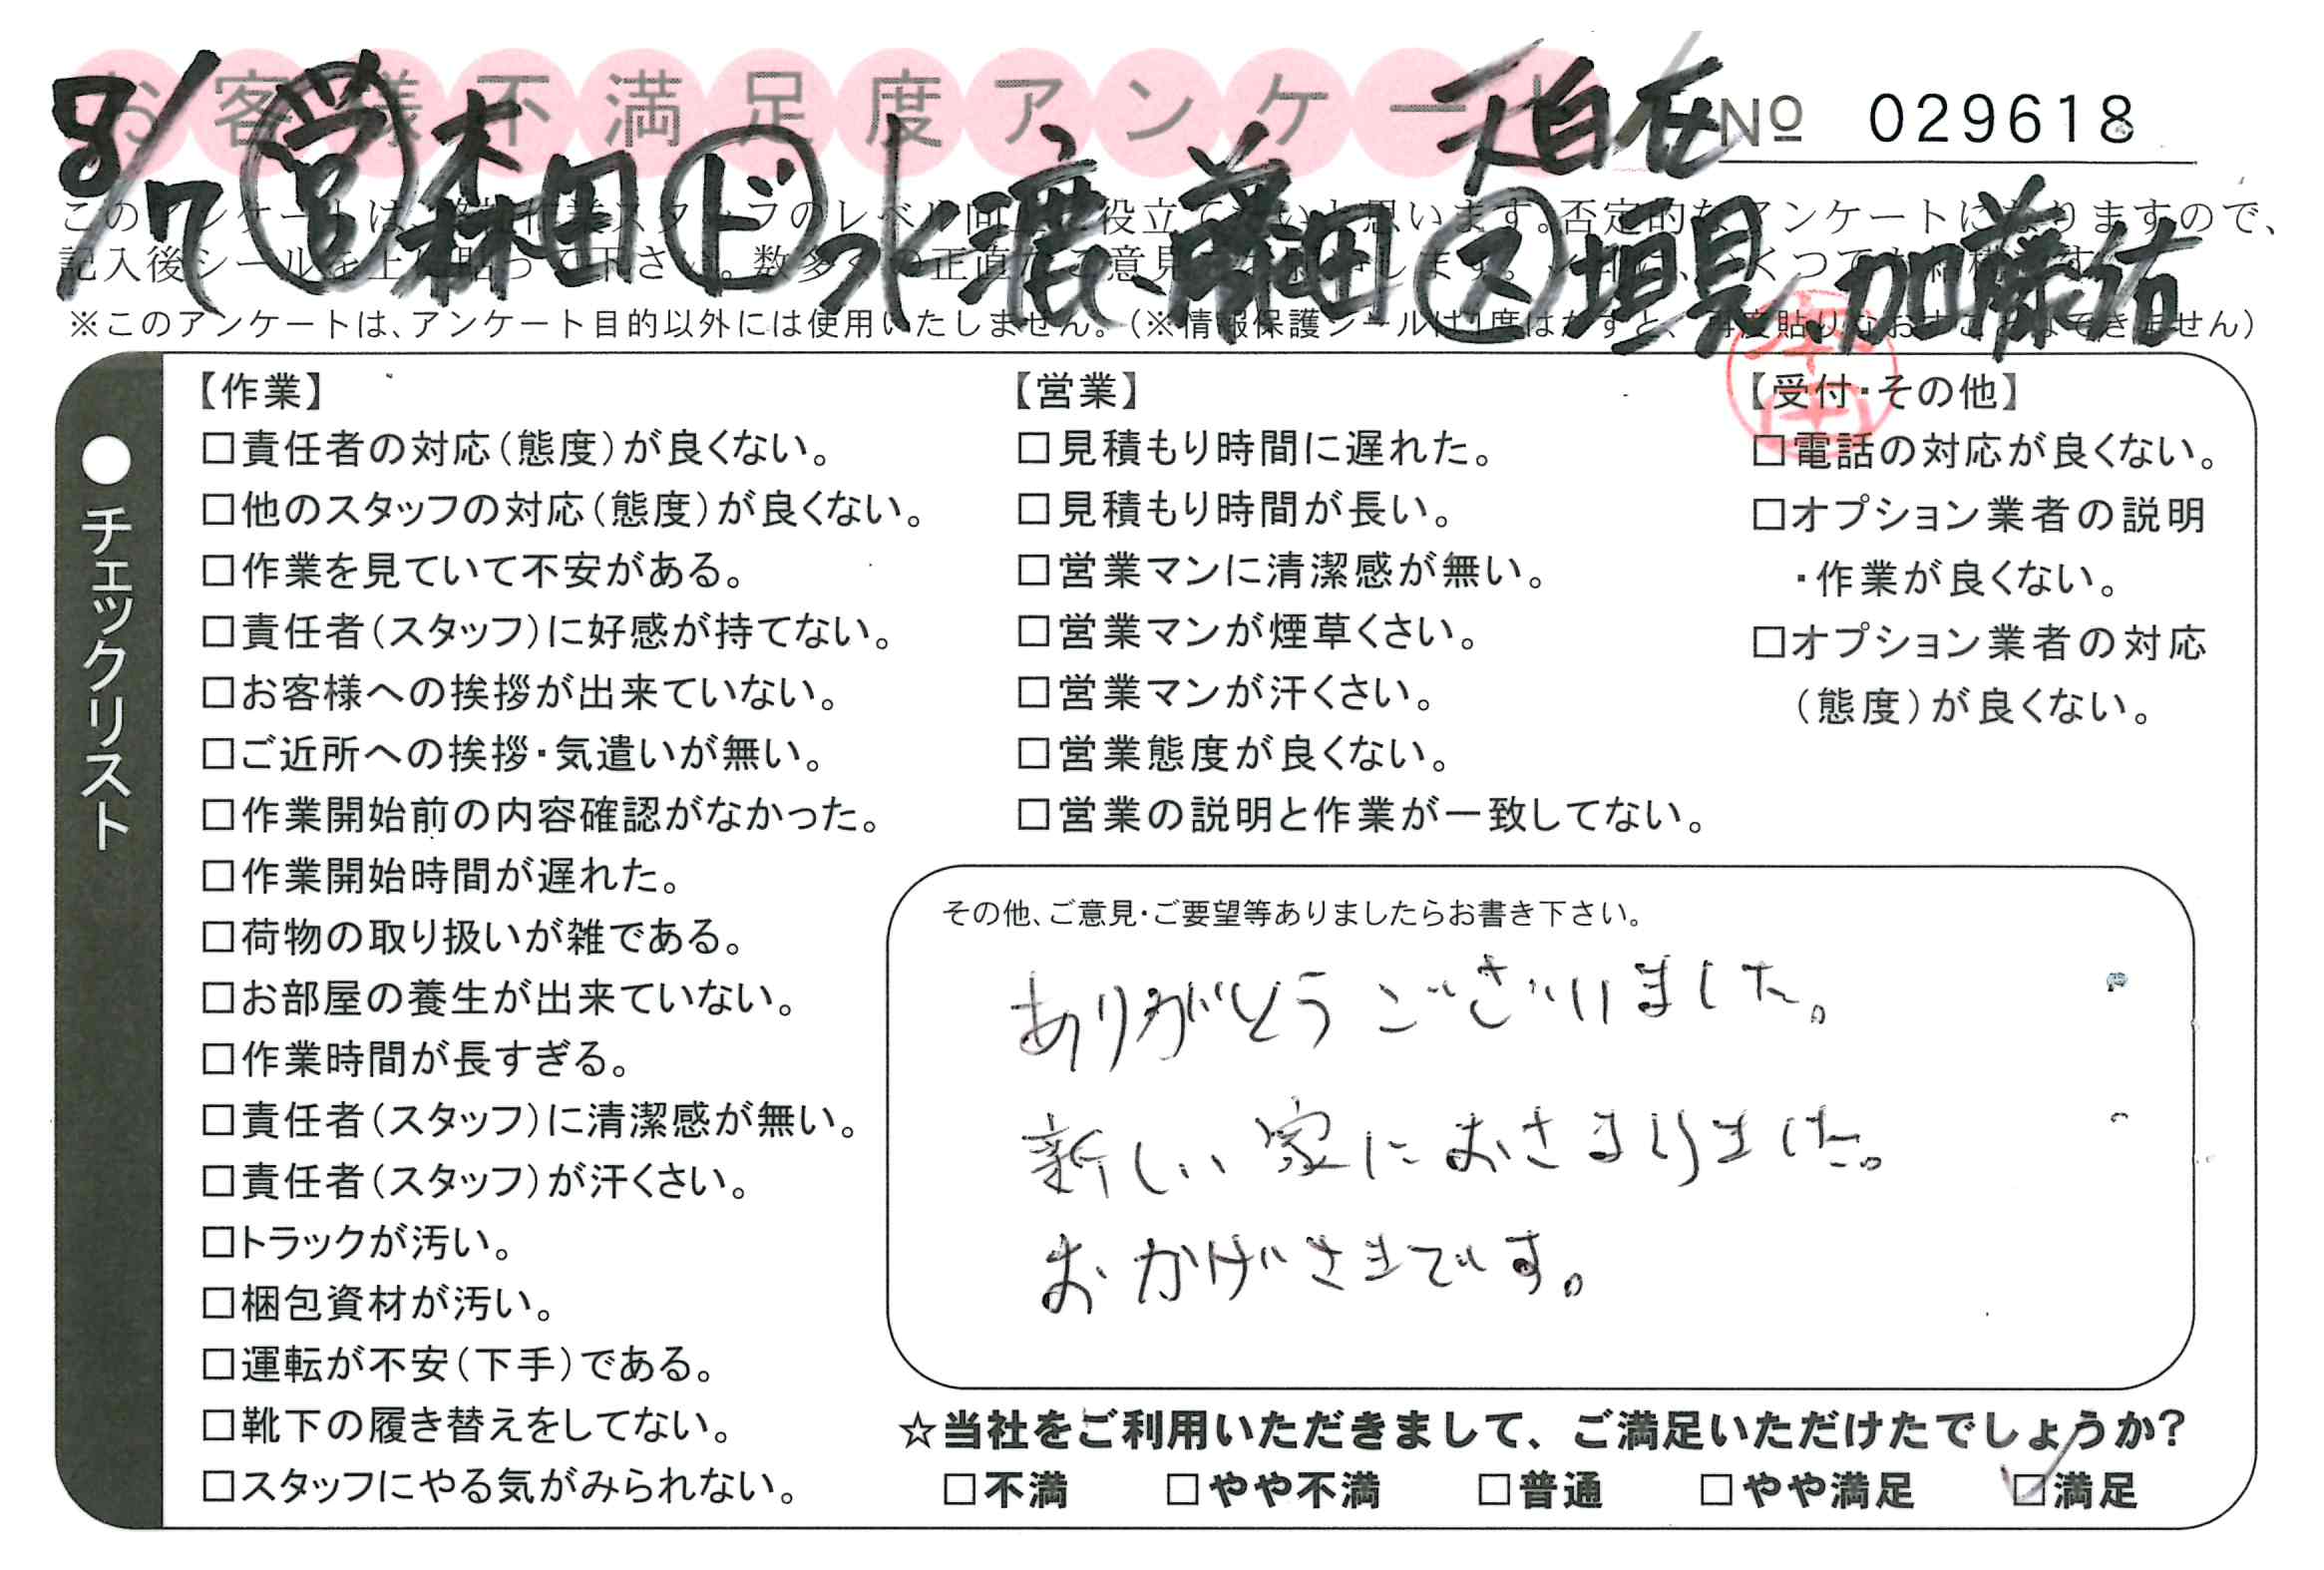 お客様不満足度アンケート
天白在
№ 029618
8/7 営 森田 ド つく 濃、藤田 ス 垣見、加藤佑
※このアンケートは、アンケート目的以外には使用いたしません。(※情報保護シールは1度はがすと、再度貼りなおすことはできません)
●チェックリスト
【作業】
□責任者の対応(態度)が良くない。
□他のスタッフの対応(態度)が良くない。
□作業を見ていて不安がある。
□責任者(スタッフ)に好感が持てない。
□お客様への挨拶が出来ていない。
□ご近所への挨拶・気遣いが無い。
□作業開始前の内容確認がなかった。
□作業開始時間が遅れた。
□荷物の取り扱いが雑である。
□お部屋の養生が出来ていない。
□作業時間が長すぎる。
□責任者(スタッフ)に清潔感が無い。
□責任者(スタッフ)が汗くさい。
□トラックが汚い。
□梱包資材が汚い。
□運転が不安(下手)である。
□靴下の履き替えをしてない。
□スタッフにやる気がみられない。
【営業】
□見積もり時間に遅れた。
□見積もり時間が長い。
□営業マンに清潔感が無い。
□営業マンが煙草くさい。
□営業マンが汗くさい。
□営業態度が良くない。
□営業の説明と作業が一致してない。
【受付・その他】
□電話の対応が良くない。
□オプション業者の説明
・作業が良くない。
□オプション業者の対応
(態度)が良くない。
その他、ご意見・ご要望等ありましたらお書き下さい。
ありがとうございました。
新しい家におさまりました。
おかげさまです。
☆当社をご利用いただきまして、ご満足いただけたでしょうか?
□不満 □やや不満 □普通 □やや満足 ☑満足